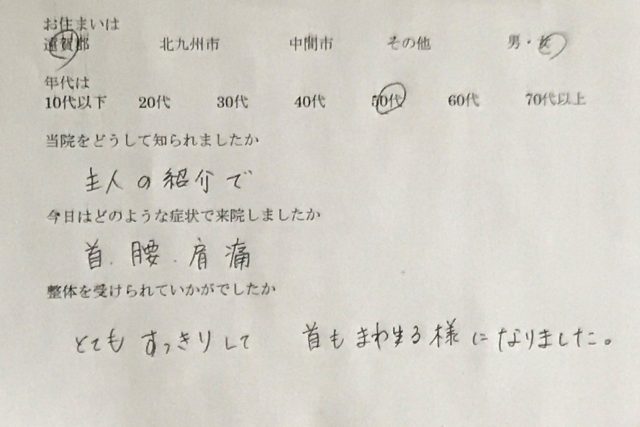 お住まいは
遠賀郡 北九州市 中間市 その他 男・女
年代は
10代以下 20代 30代 40代 50代 60代 70代以上
当院をどうして知られましたか
主人の紹介で
今日はどのような症状で来院しましたか
首.腰.肩痛
整体を受けられていかがでしたか
とてもすっきりして 首も る様になりました。